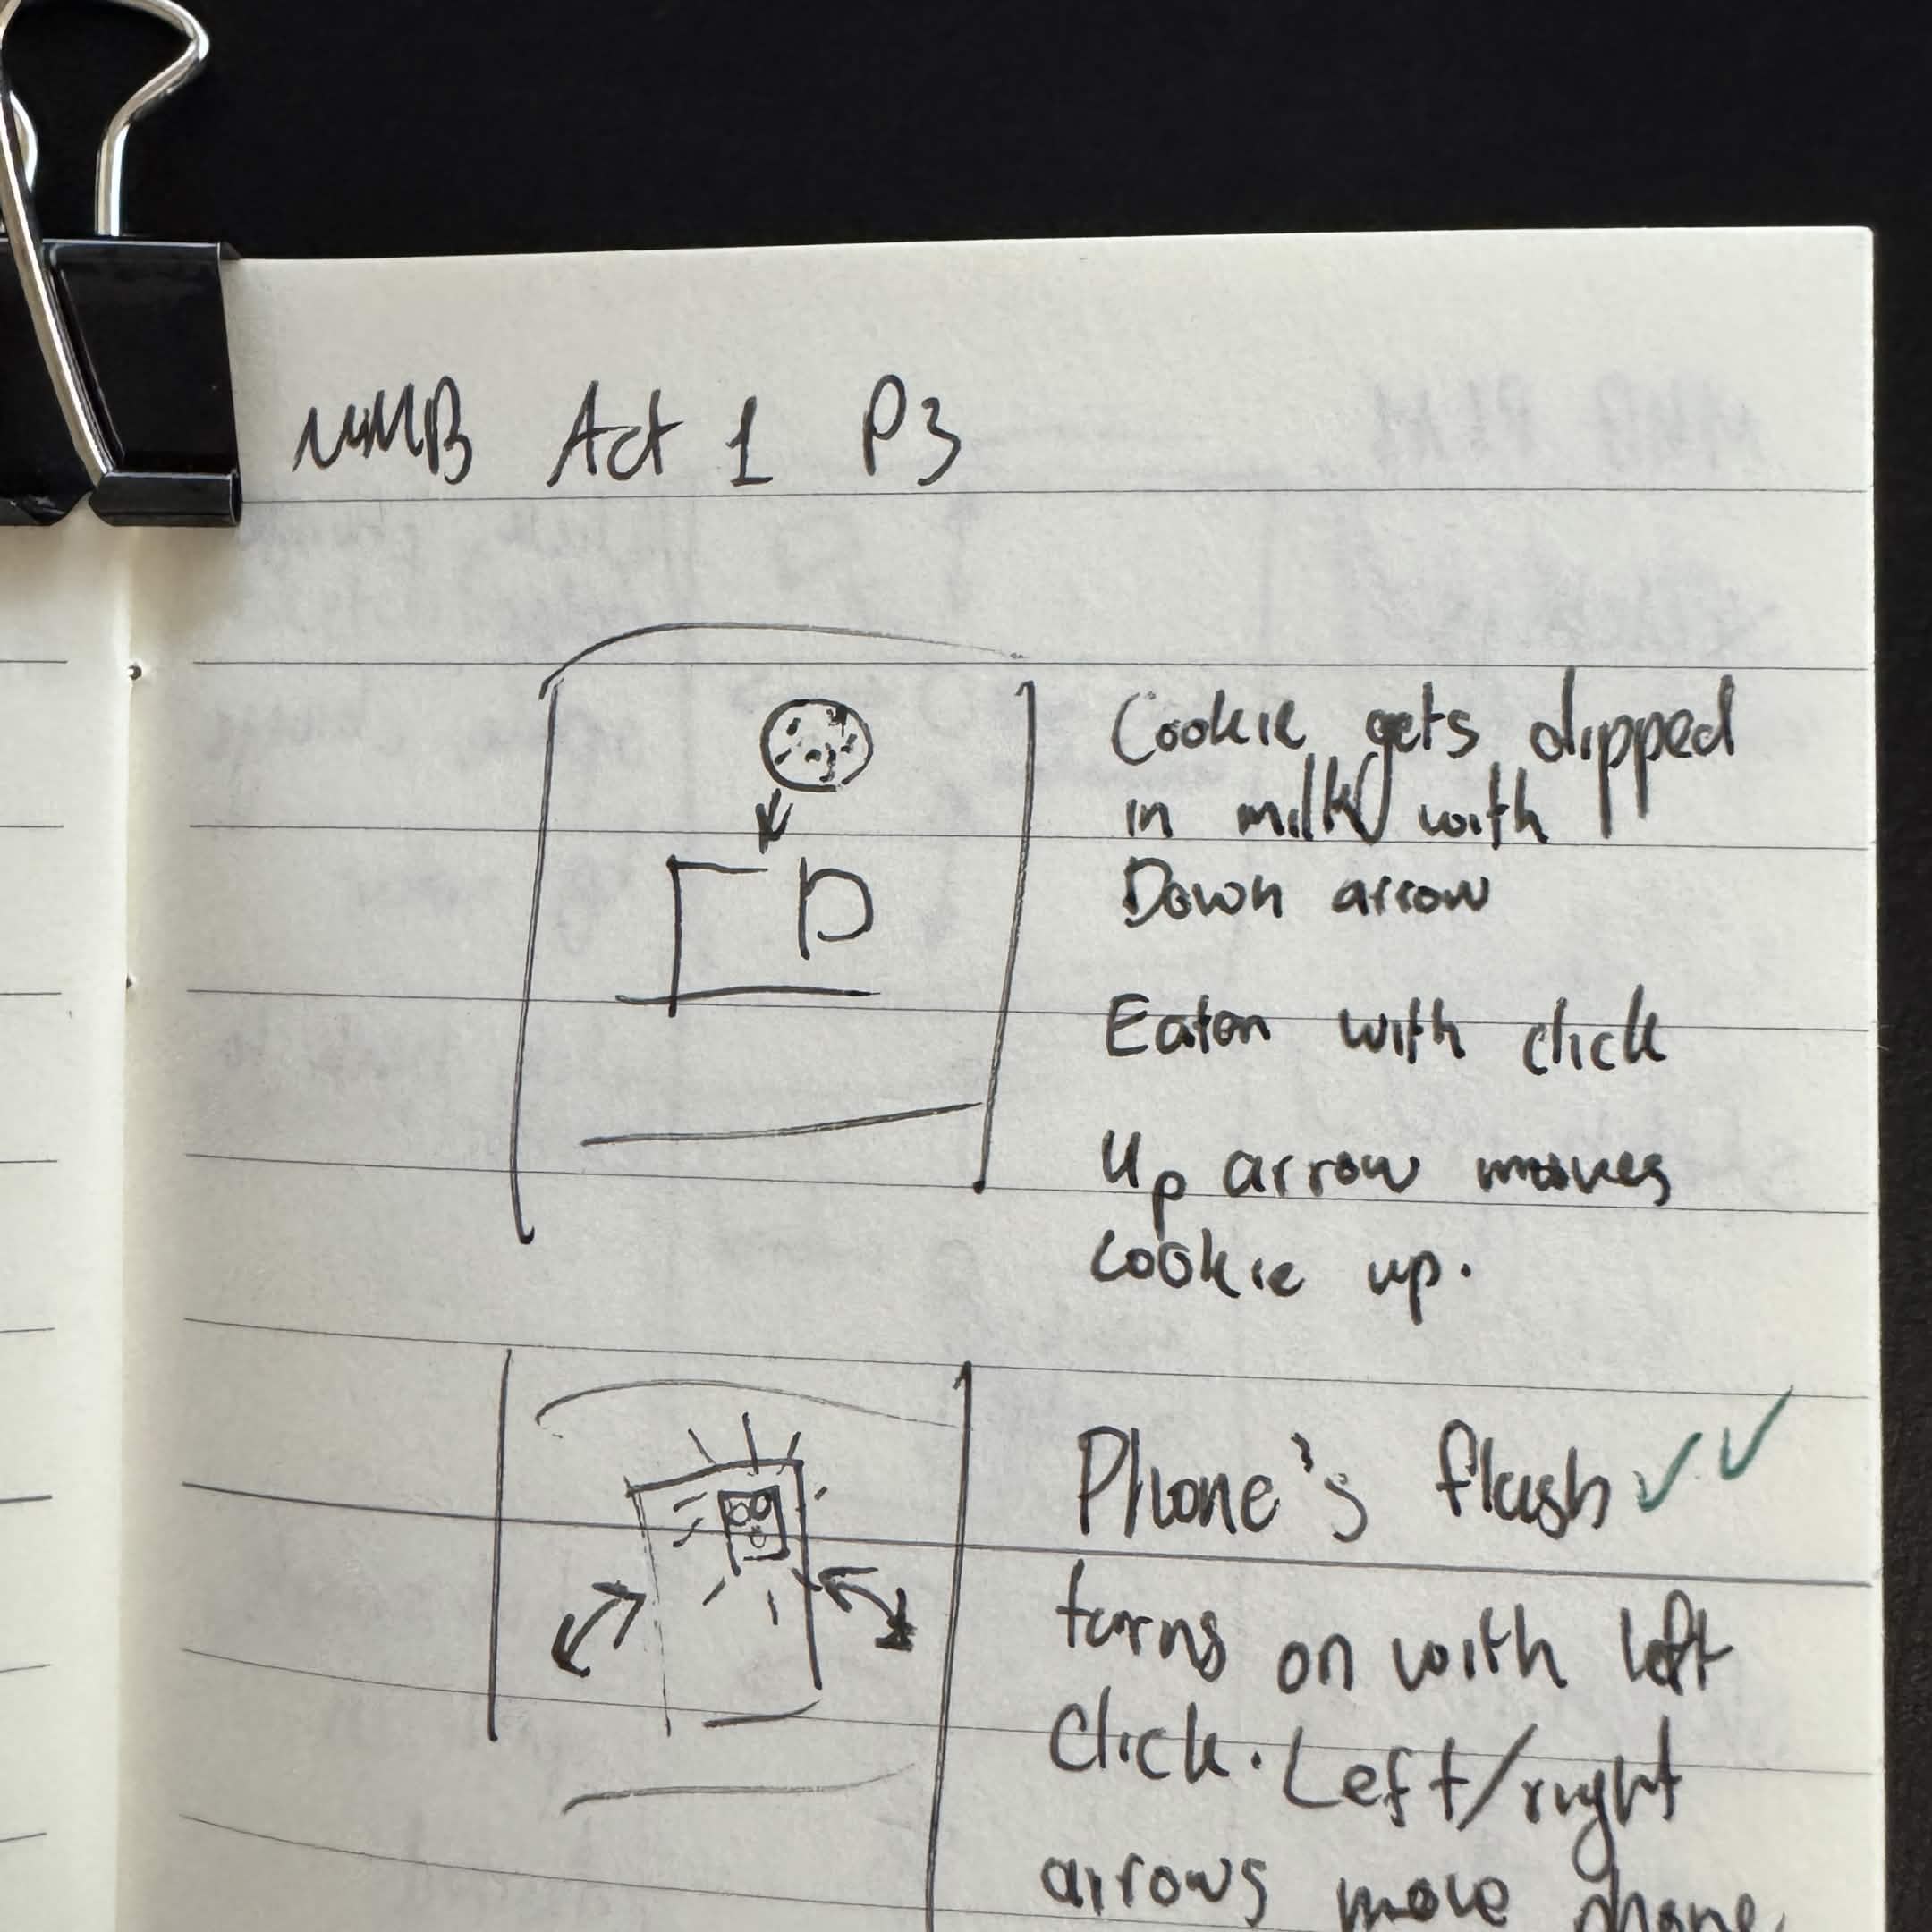 MMB Act 1 P3
Cookie gets dipped
in milk with
Down arrow
Eaten with click
Up arrow moves
cookie up.
Phone's flash
turns on with left
click. Left/right
arrows move phone